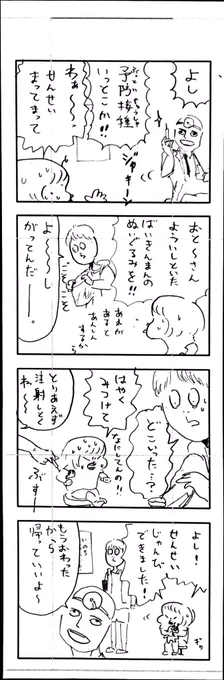 よし
だいじょうぶ
予防接種
いっとこか!!
ジャキーン
わぁ～‥
せんせい
まってまって
おと～さん
よういしといた
ばいきんまんの
ぬいぐるみを!!
あれが
あると
あんしん
するから
ごそごそ
よ～～し
がってんだー。
どこいった…?
はやく
みつけて
なにしてんの!!
とりあえず
注射しとく
ね～
ぶすー
よし!
せんせい
じゅんび
できました!
ぎゅ
もうおわった
から
帰っていいよ～